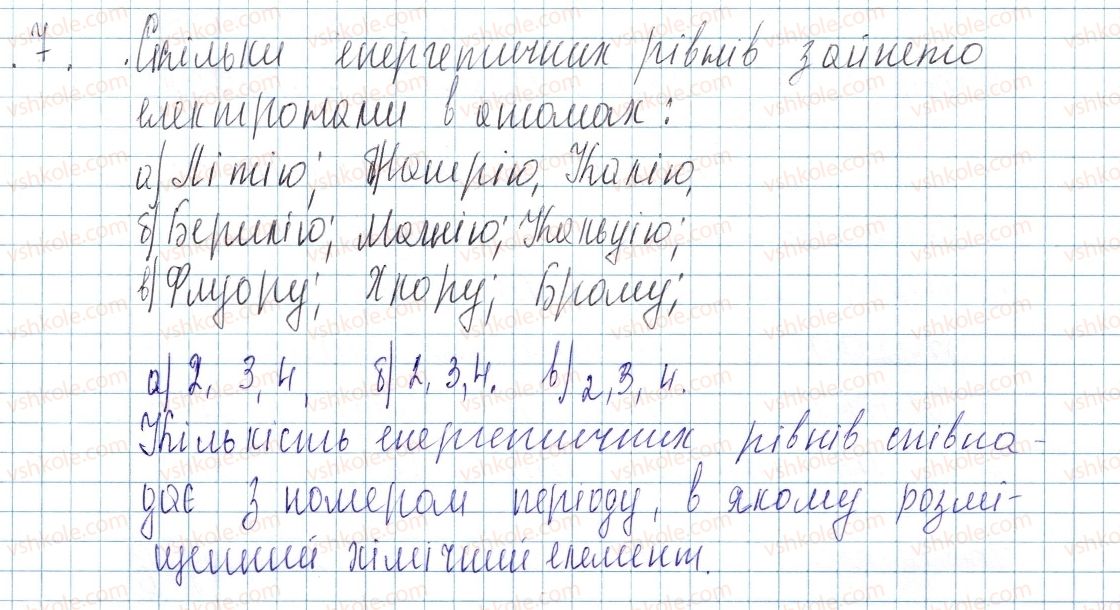 7. Скільки енергетичних рівнів зайнято
електронами в атомах:
а) Літію; Натрію, Калію,
б) Берилію; Магнію; Кальцію;
в) Флуору; Хлору; Брому;
а) 2, 3, 4, б) 2, 3, 4. в) 2, 3, 4.
Кількість енергетичних рівнів співпа-
дає з номером періоду, в якому розмі-
щенний хімічний елемент.